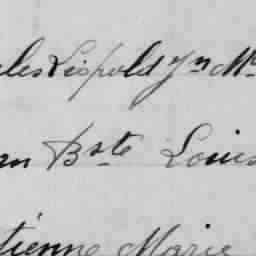 les Léopold Jn M
n Bste Louis
tienne Marie